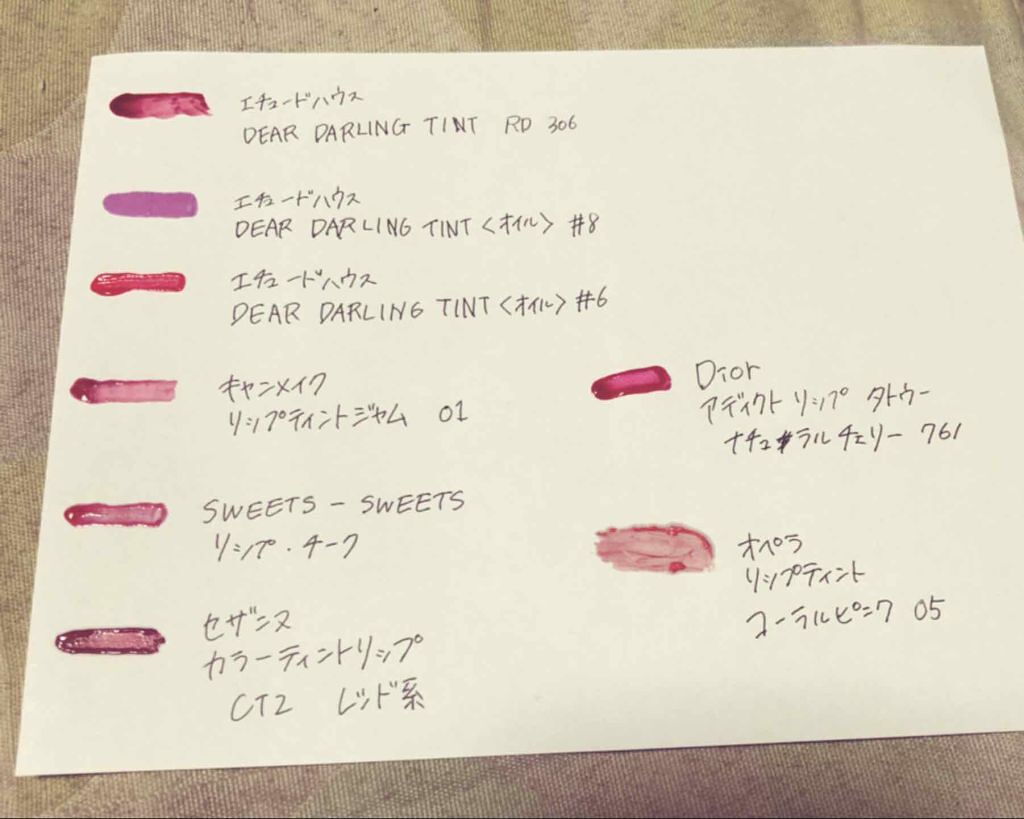 エチュードハウス
DEAR DARLING TINT RD 306
エチュードハウス
DEAR DARLING TINT <オイル> #8
エチュードハウス
DEAR DARLING TINT <オイル> #6
キャンメイク
リップティントジャム 01
SWEETS - SWEETS
リップ・チーク
セザンヌ
カラーティントリップ
CT2 レッド系
Dior
アディクト リップ タトゥー
ナチュラル チェリー 761
オペラ
リップティント
コーラルピンク 05